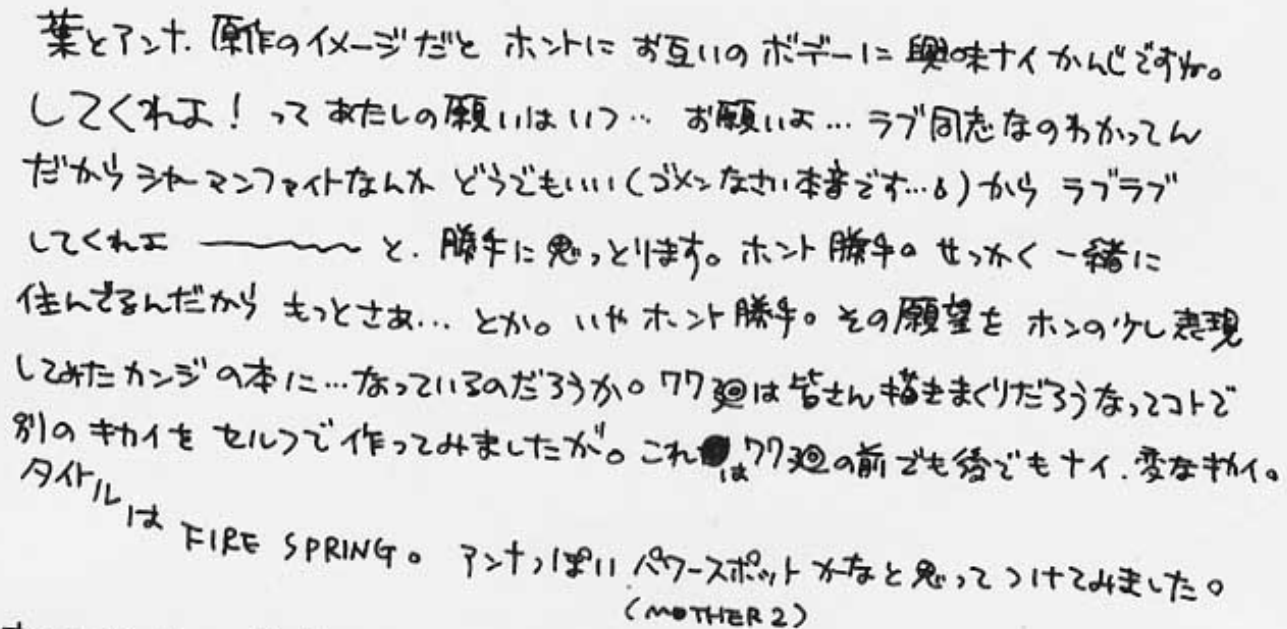 葉とアンナ. 原作のイメージだと ホントに お互いの ボデーに 興味ナイ かんじですね。
してくれよ! って あたしの願いは いつ… お願いよ… ラブ同志なのわかってん
だから シャーマンファイトなんか どうでもいい(ゴメンなさい本音です…δ)から ラブラブ
してくれよ 〜〜〜 と. 勝手に思っとります。ホント勝手。せっかく 一緒に
住んでるんだから もっとさあ… とか。いや ホント勝手。その願望を ホンの少し表現
してみた カンジの本に…なっているのだろうか。77廻は 皆さん 描きまくりだろうなってコトで
別の キカイを セルフで作ってみましたが。これは77廻の前でも後でもナイ. 変なキカイ。
タイトルは FIRE SPRING。 アンナっぽい パワースポットかなと思って つけてみました。
(MOTHER2)